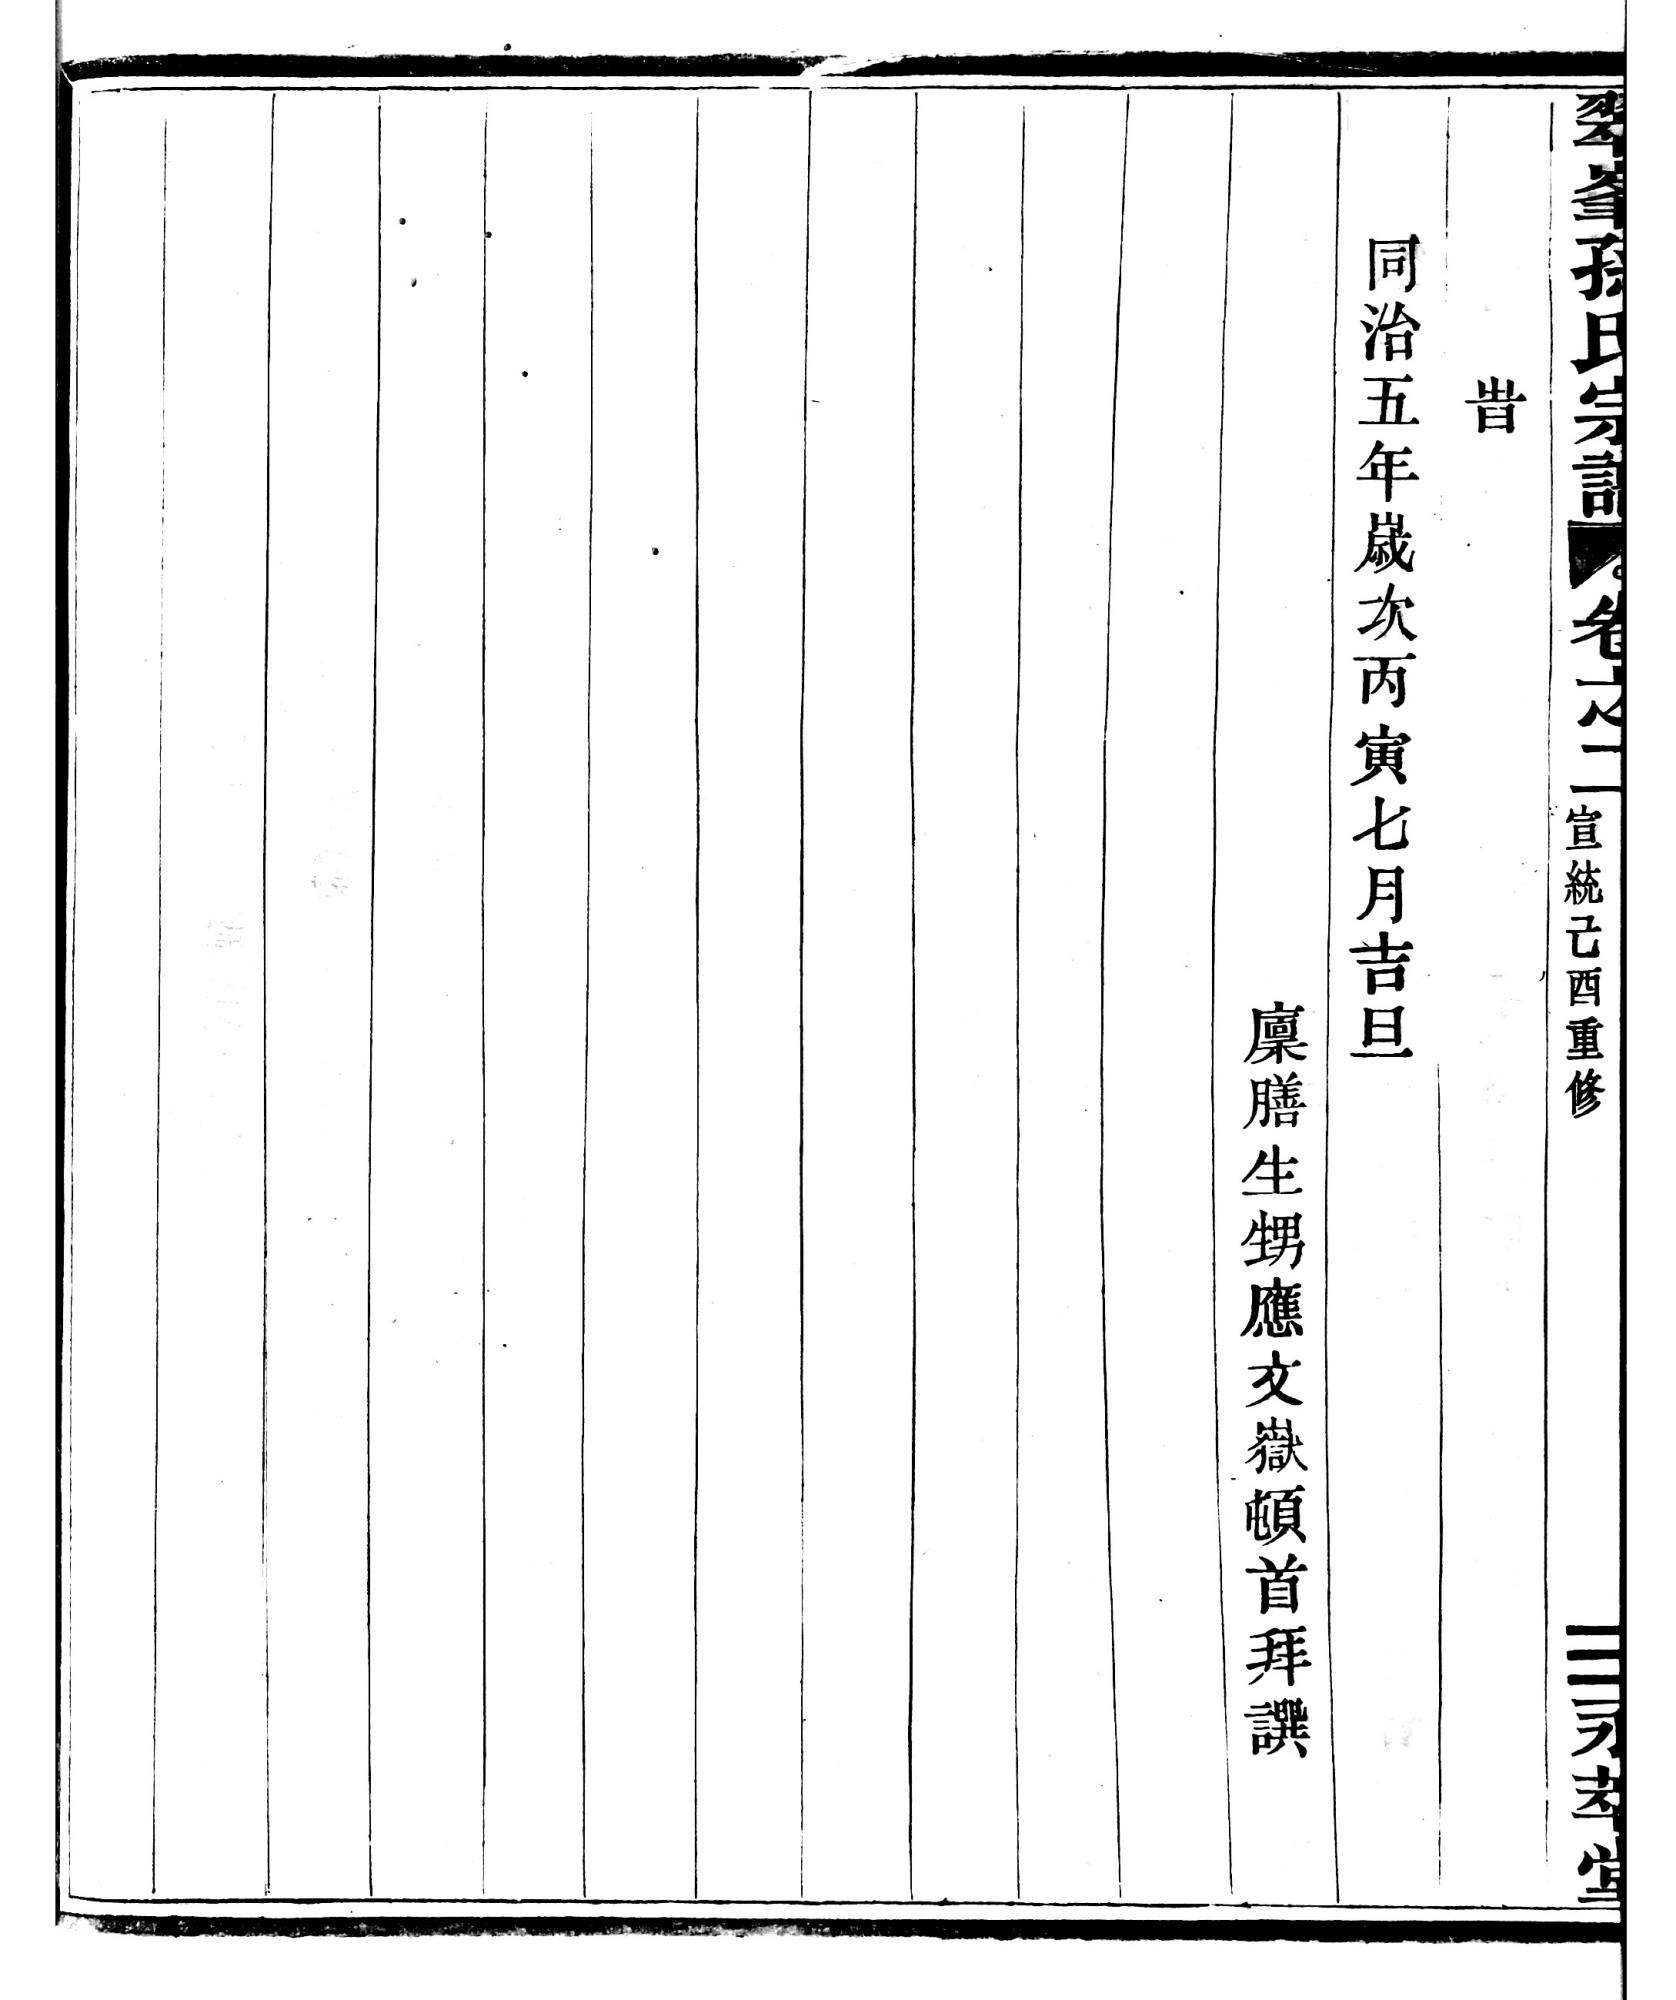 翠峯孫氏宗譜 卷之二 宣統己酉重修 三 永萃堂
旹
同治五年歲次丙寅七月吉旦
廩膳生甥應文嶽頓首拜譔